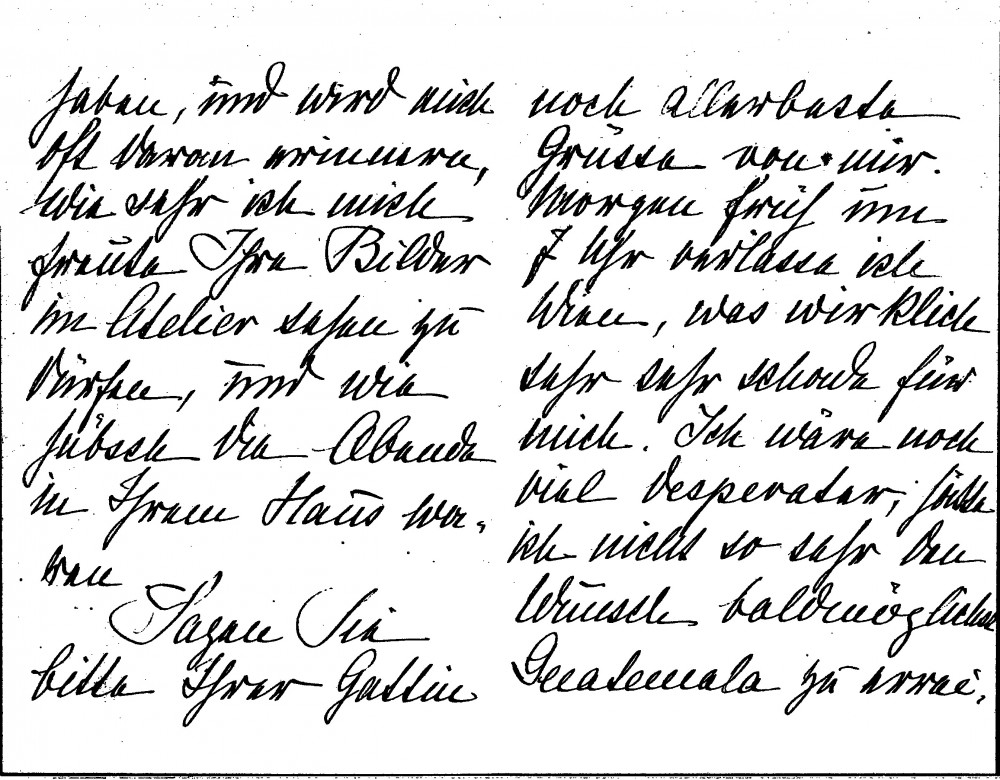 haben, und wird mich
oft daran erinnern,
wie sehr ich mich
freute Ihre Bilder
im Atelier sehen zu
dürfen, und wie
hübsch die Abende
in Ihrem Haus wa-
ren
Sagen Sie
bitte Ihrer Gattin
noch allerbeste
Grüsse von mir.
Morgen früh um
7 Uhr verlasse ich
Wien, was wirklich
sehr sehr schade für
mich. Ich wäre noch
viel desperater, hätte
ich nicht so sehr den
Wunsch baldmöglichst
Guatemala zu errei-